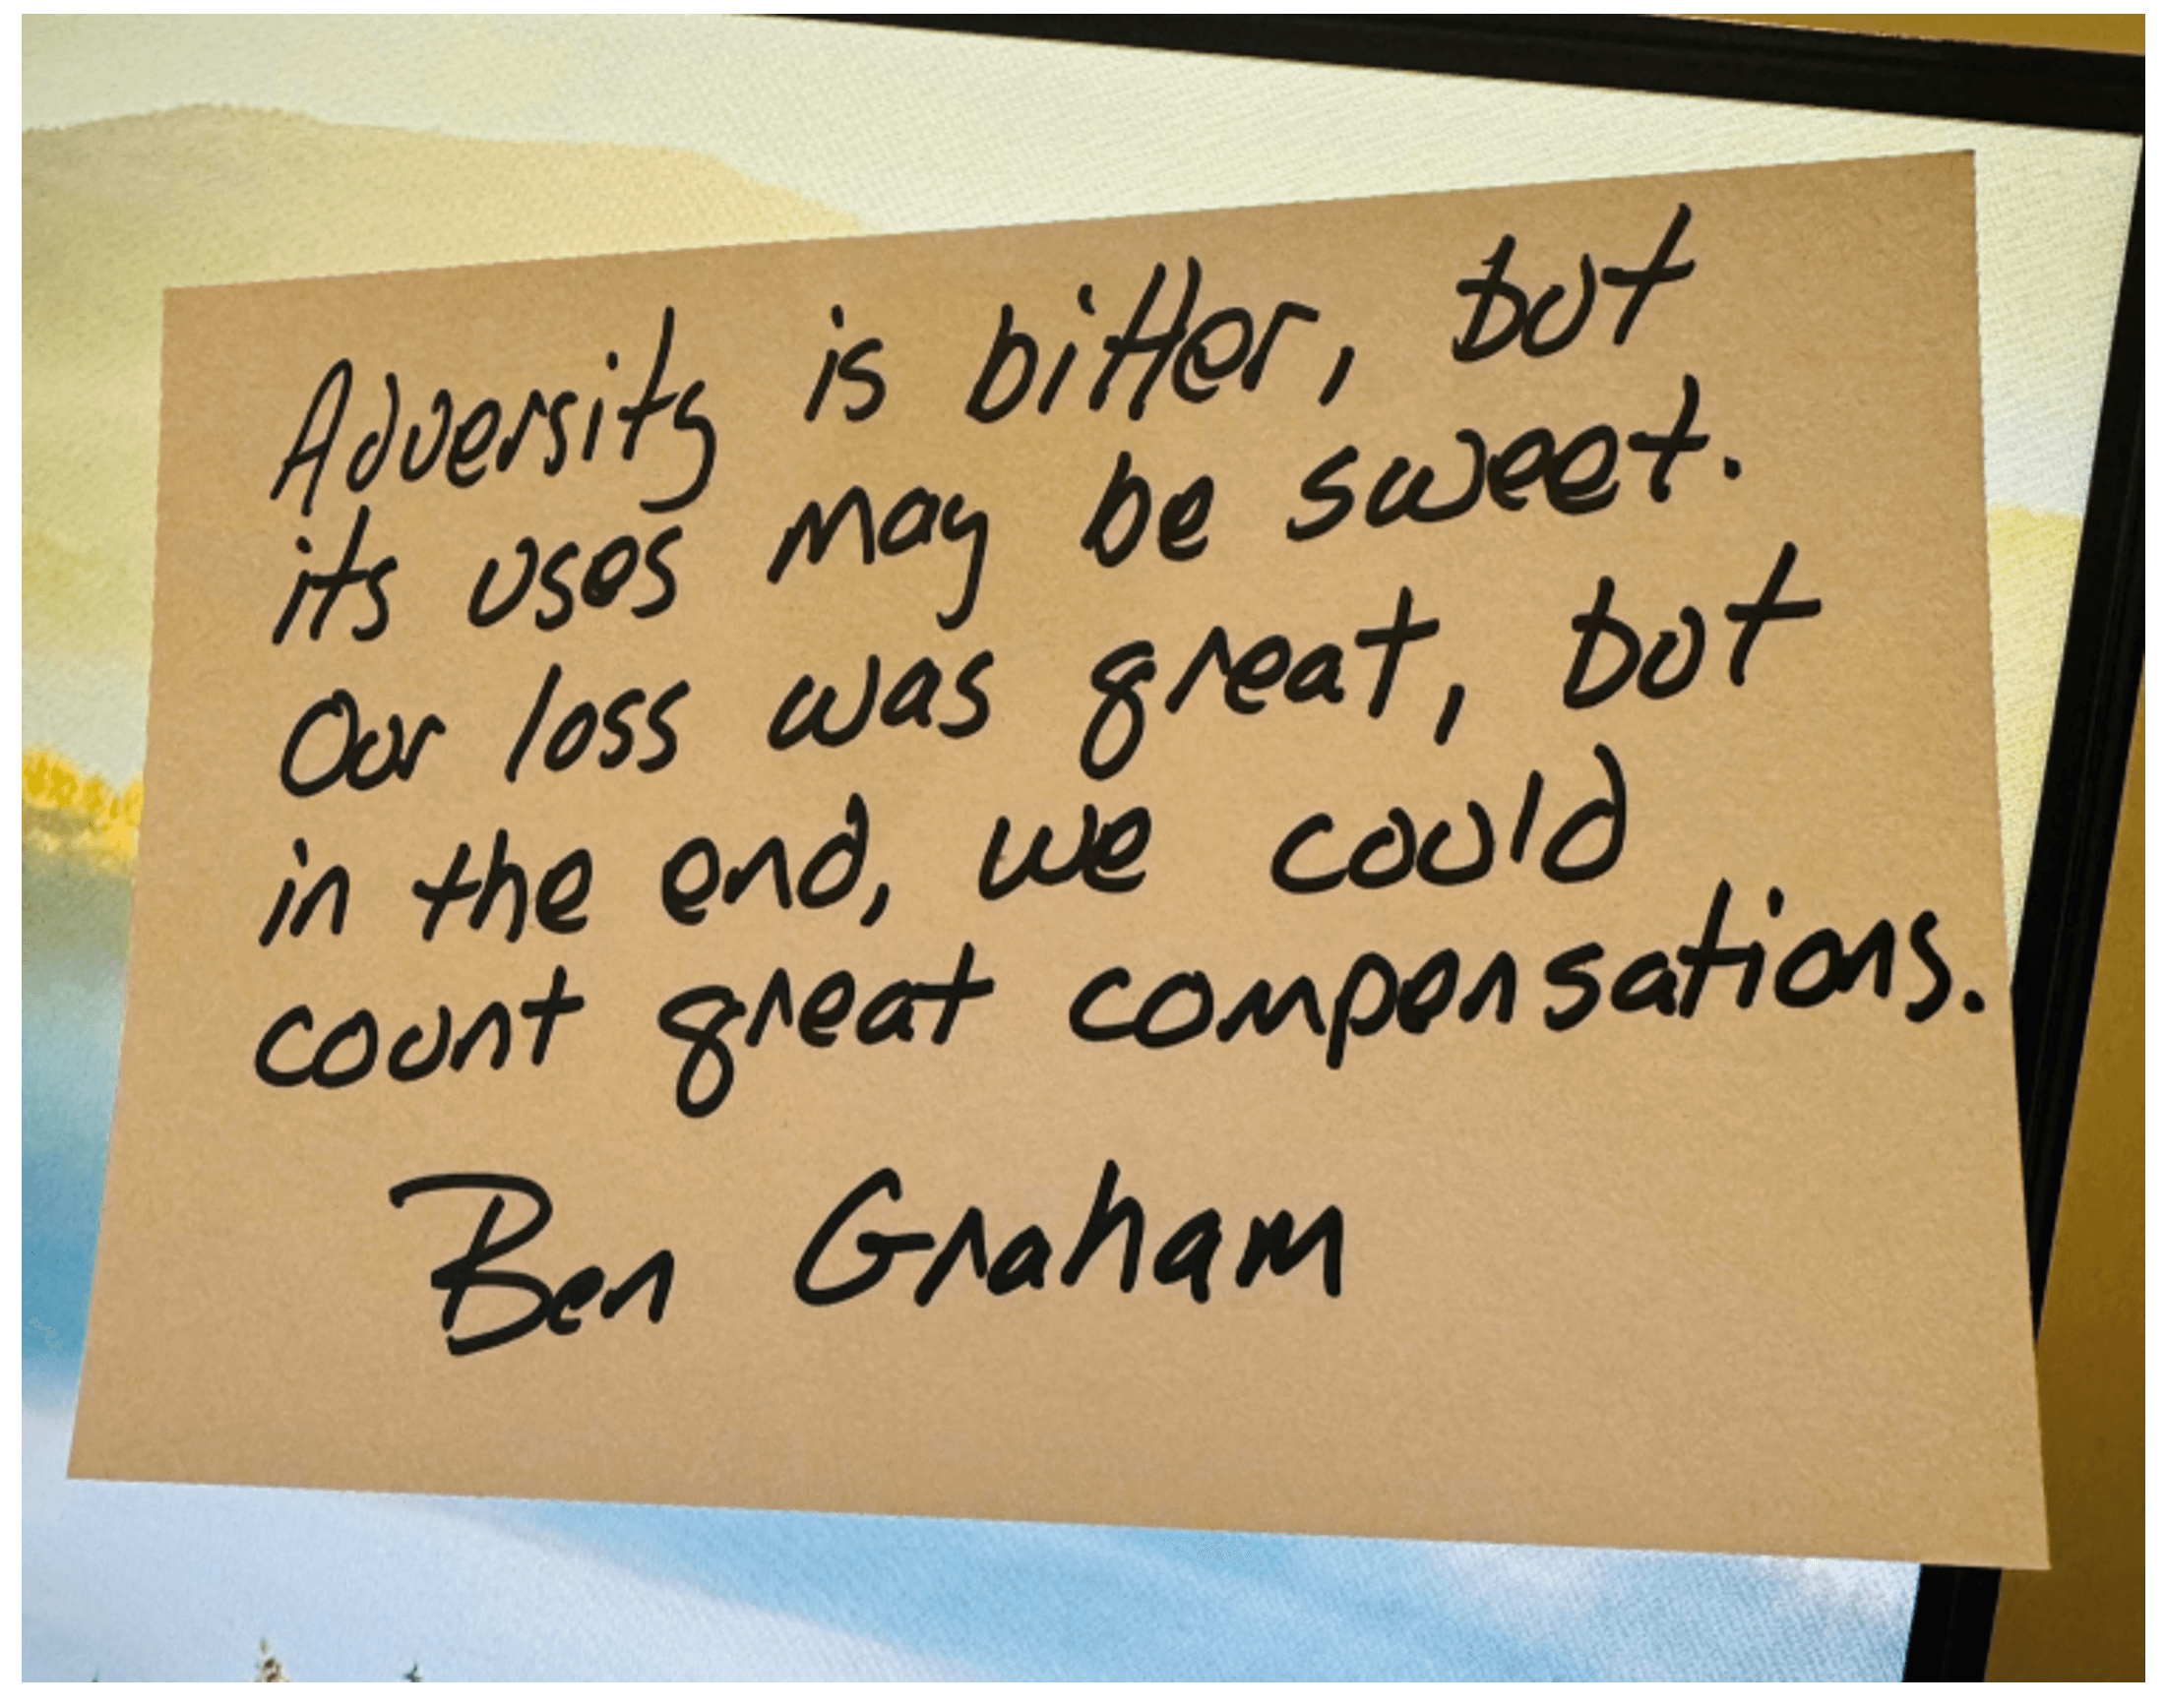 Adversity is bitter, but
its uses may be sweet.
Our loss was great, but
in the end, we could
count great compensations.
Ben Graham